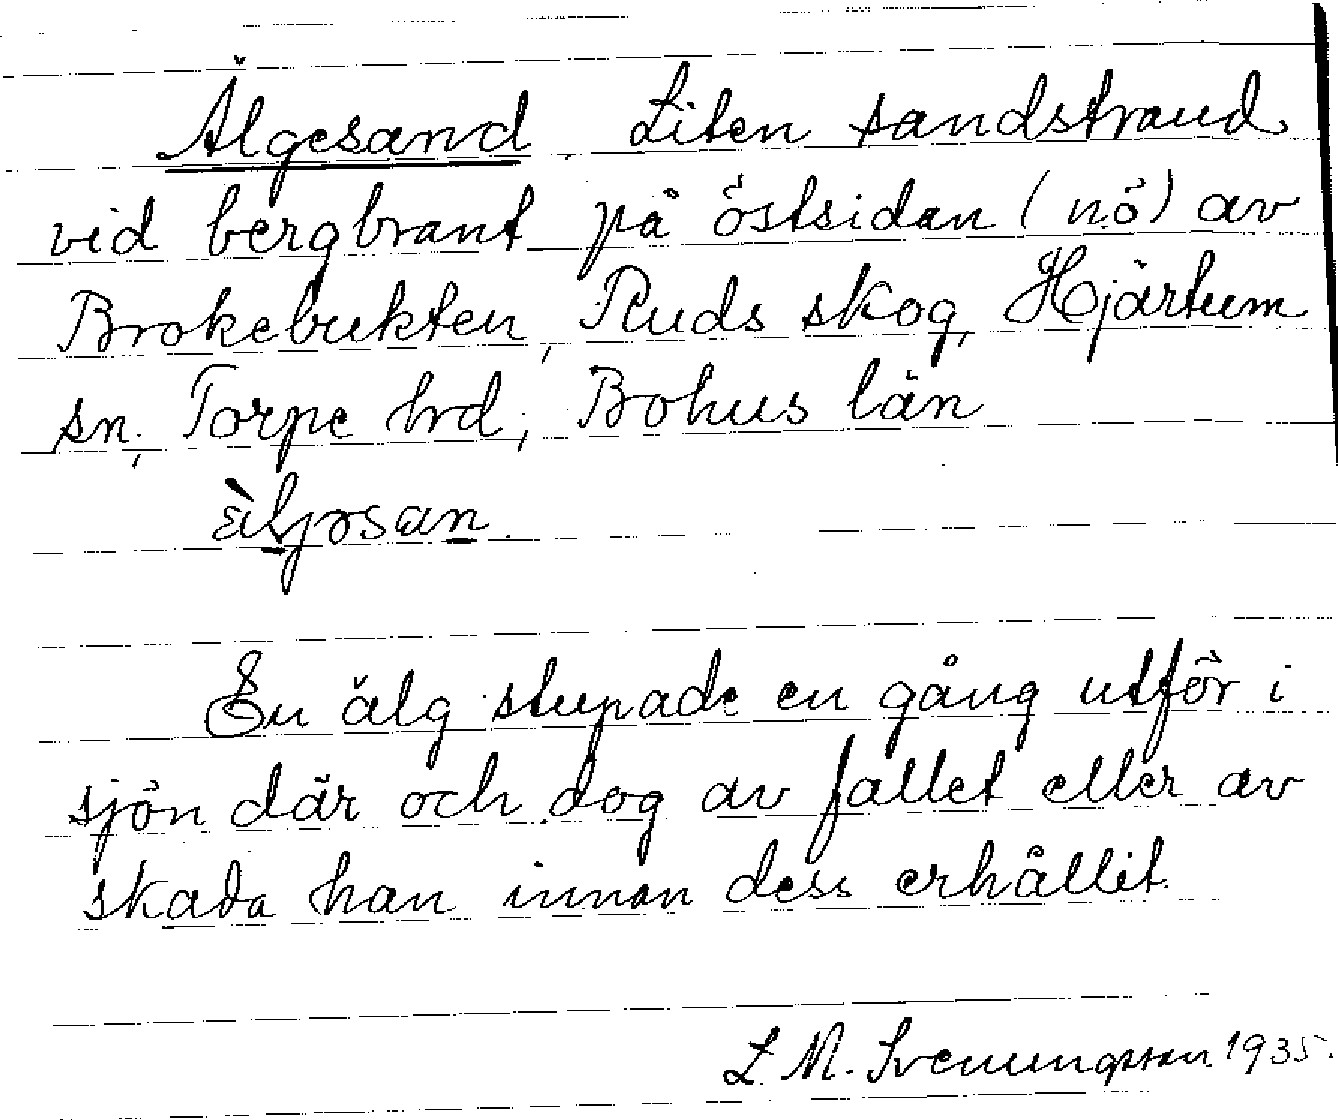 Älgesand. Liten sandstrand
vid bergbrant på östsidan (nö) av
Brokebukten, Ruds skog, Hjärtum
sn, Torpe hrd, Bohus län
En älg stupade en gång utför i
sjön där och dog av fallet eller av
skada han innan dess erhållit.
L. M. Svenungsson 1935.